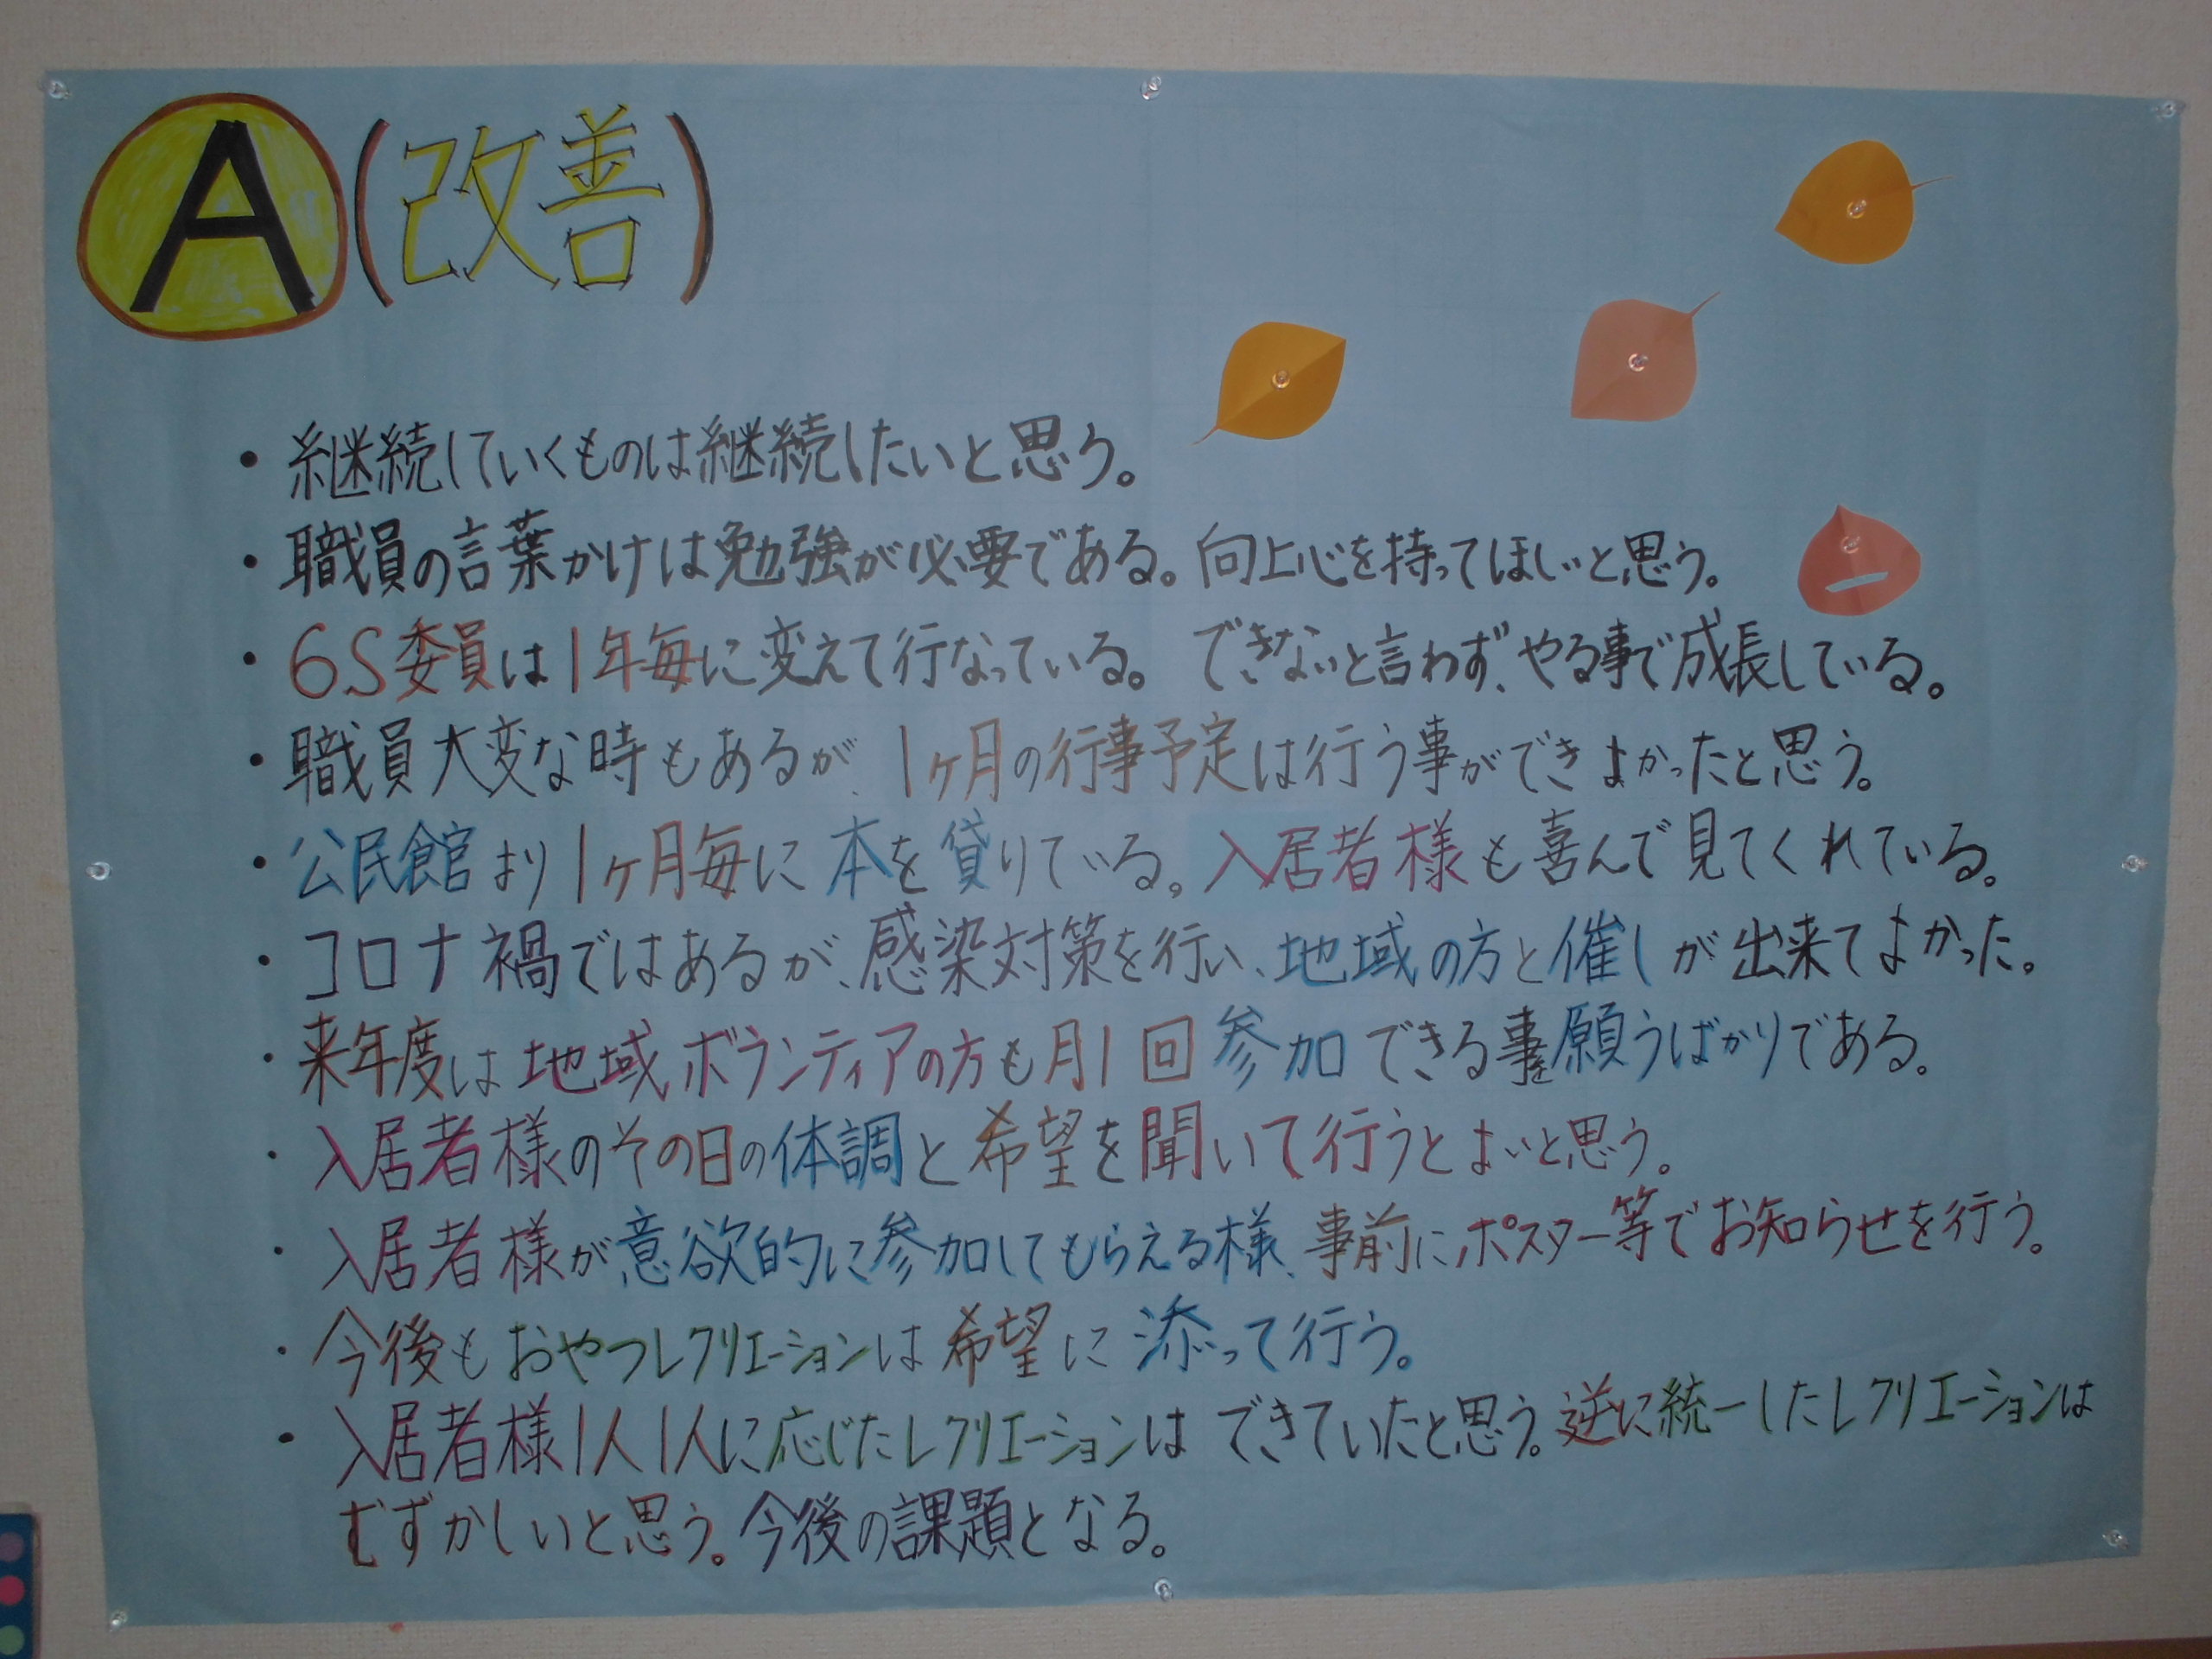 A(改善)
・継続していくものは継続したいと思う。
・職員の言葉かけは勉強が必要である。向上心を持ってほしいと思う。
・6S委員は1年毎に変えて行なっている。できないと言わず、やる事で成長している。
・職員大変な時もあるが、1ヶ月の行事予定は行う事ができよかったと思う。
・公民館より1ヶ月毎に本を貸りている。入居者様も喜んで見てくれている。
・コロナ禍ではあるが、感染対策を行い、地域の方と催しが出来てよかった。
・来年度は地域ボランティアの方も月1回参加できる事を願うばかりである。
・入居者様のその日の体調と希望を聞いて行うとよいと思う。
・入居者様が意欲的に参加してもらえる様、事前にポスター等でお知らせを行う。
・今後もおやつレクリエーションは希望に添って行う。
・入居者様1人1人に応じたレクリエーションはできていたと思う。逆に統一したレクリエーションは
むずかしいと思う。今後の課題となる。